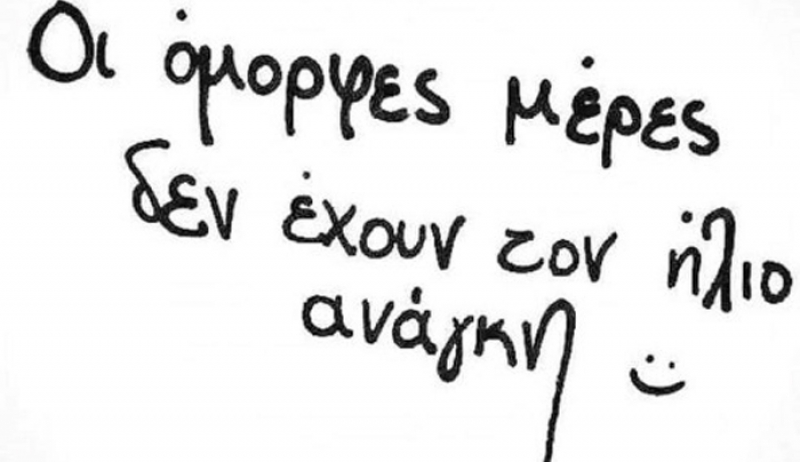 Οι όμορφες μέρες
δεν έχουν τον ήλιο
ανάγκη :)